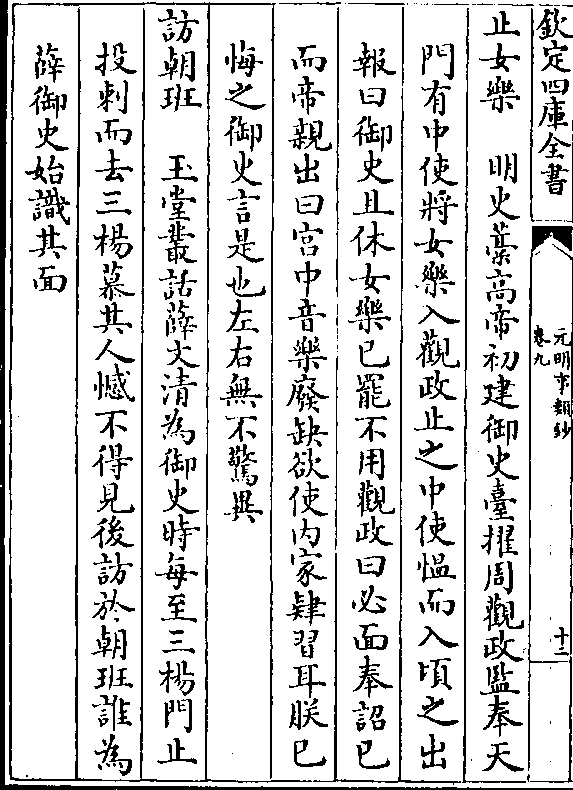 欽定四庫全書
元明事類鈔
卷九
十二
止女樂　明史藁高帝初建御史臺擢周觀政監奉天
門有中使將女樂入觀政止之中使愠而入頃之出
報曰御史且休女樂已罷不用觀政曰必面奉詔已
而帝親出曰宫中音樂廢缺欲使内家肄習耳朕已
悔之御史言是也左右無不驚異
訪朝班　玉堂叢話薛文清為御史時每至三楊門止
投刺而去三楊慕其人憾不得見後訪於朝班誰為
薛御史始識其面